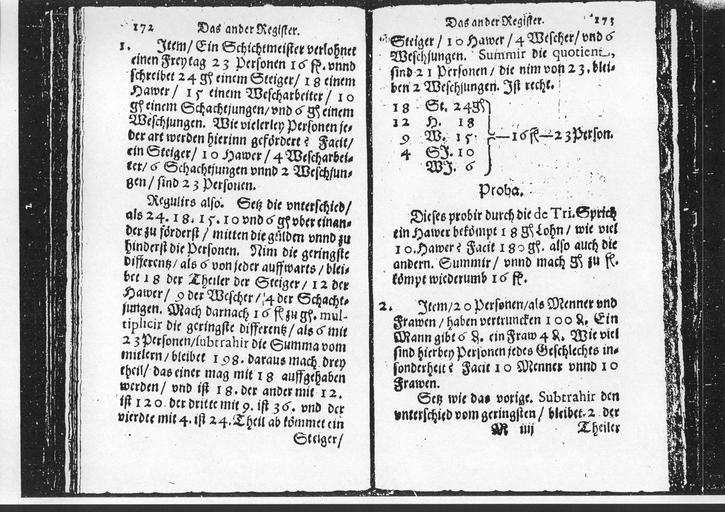 172 Das ander Register.
1. Item/ Ein Schichtmeister verlohnet
einen Freytag 23 Personen 16 fl. vnnd
schreibet 24 gl einem Steiger/ 18 einem
Hawer/ 15 einem Wescharbeiter/ 10
gl einem Schachtjungen/vnd 6 gl einem
Weschjungen. Wie vielerley Personen je-
der art werden hierinn gefördert? Facit/
ein Steiger/ 10 Hawer/ 4 Wescharbei-
ter/ 6 Schachtjungen vnnd 2 Weschjun-
gen/ sind 23 Personen.
Regulirs also. Setz die vnterschied/
als 24. 18. 15. 10 vnd 6 gl vber einan-
der zu förderst/ mitten die gülden vnnd zu
hinderst die Personen. Nim die geringste
differentz/ als 6 von jeder auffwarts/ blei-
bet 18 der Theiler der Steiger/ 12 der
Hawer/ 9 der Wescher/ 4 der Schacht-
jungen. Mach darnach 16 fl zu gl. mul-
tiplicir die geringste differentz/ als 6 mit
23 Personen/subtrahir die Summa vom
mitlern/ bleibet 198. daraus mach drey
theil/ das einer mag mit 18 auffgehaben
werden/ vnd ist 18. der ander mit 12.
ist 120 der dritte mit 9. ist 36. vnd der
vierdte mit 4. ist 24. Theil ab kömmet ein
Steiger/
Das ander Register. 173
Steiger/ 10 Hawer/ 4 Wescher/ vnd 6
Weschjungen. Summir die quotient,
sind 21 Personen/ die nim von 23, blei-
ben 2 Weschjungen. Ist recht.
18 St. 24 gl
12 H. 18
9 W. 15 —16 fl—23 Person.
4 SJ. 10
WJ. 6
Proba.
Dieses probir durch die de Tri. Sprich
ein Hawer bekömpt 18 gl Lohn/ wie viel
10. Hawer? Facit 180 gl. also auch die
andern. Summir/ vnnd mach gl zu fl.
kömpt wiederumb 16 fl.
2. Item/20 Personen/als Menner vnd
Frawen/ haben vertruncken 100 ₰. Ein
Mann gibt 6 ₰. ein Fraw 4 ₰. Wie viel
sind hierbey Personen jedes Geschlechts in-
sonderheit? Facit 10 Menner vnnd 10
Frawen.
Setz wie das vorige. Subtrahir den
vnterschied vom geringsten/ bleibet 2 der
M iiij Theiler